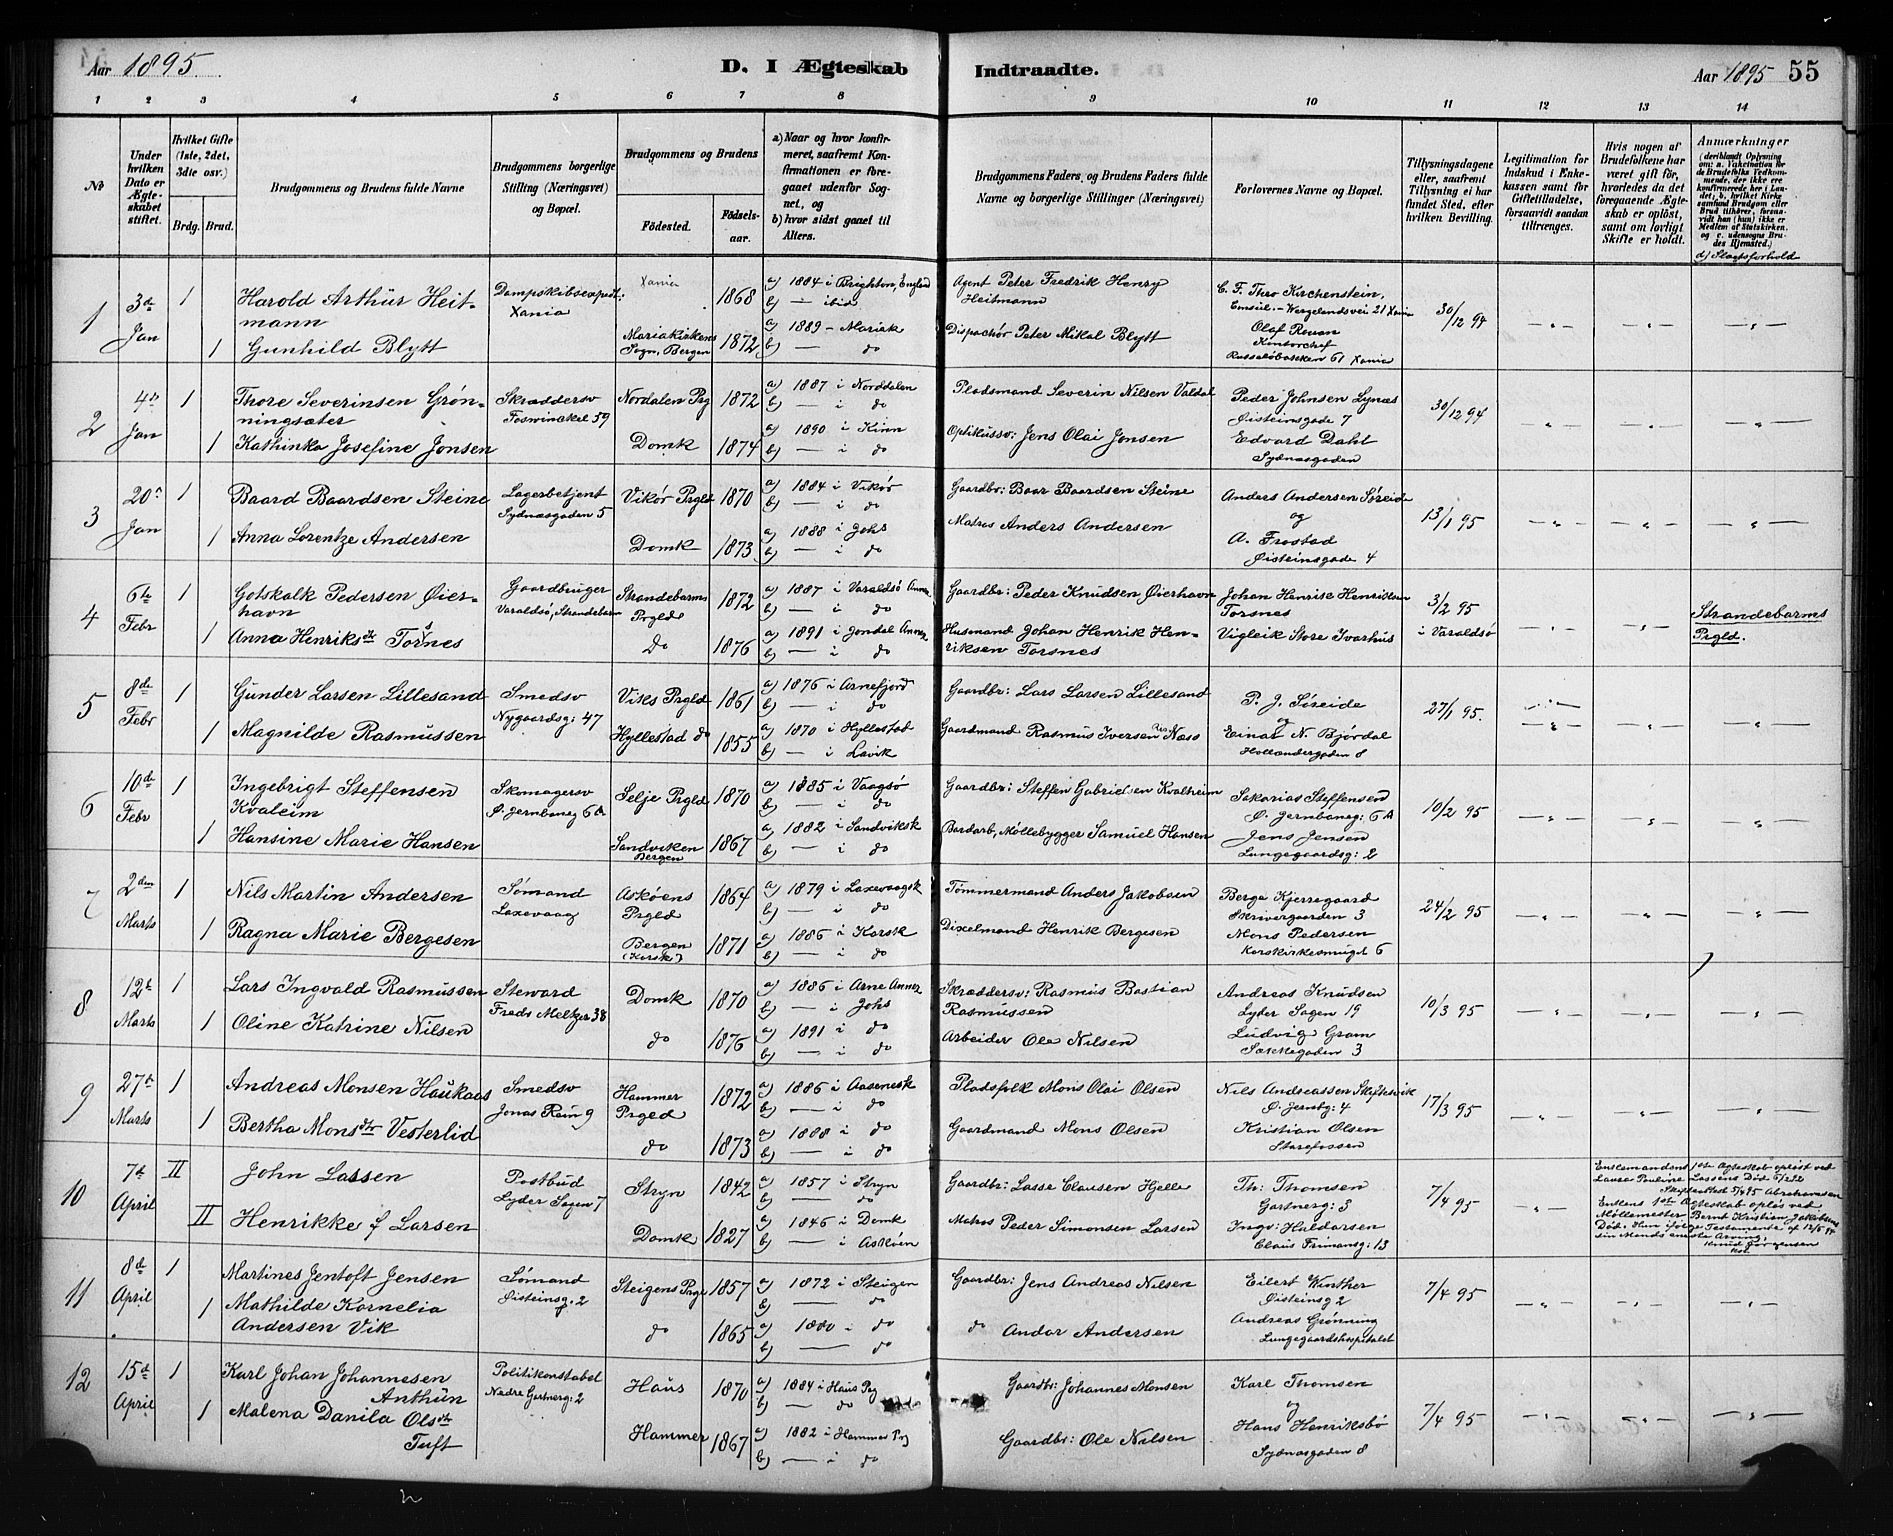 Aar 1895. D. I Ægteskab Indtraadte. Aar 1895 55
1 2 3 4 5 6 7 8 9 10 11 12 13 14
No
Under hvilken Dato er Ægteskabet stiftet.
Hvilket Gifte (1ste, 2det, 3die osv.)
Brdg. Brud.
Brudgommens og Brudens fulde Navne
Brudgommens borgerlige Stilling (Næringsvei) og Bopæl.
Brudgommens og Brudens
Fødested. Fødselsaar.
a) Naar og hvor konfirmeret, saafremt Konfirmationen er foregaaet udenfor Sognet, og
b) hvor sidst gaaet til Alters.
Brudgommens Faders og Brudens Faders fulde Navne og borgerlige Stillinger (Næringsvei)
Forlovernes Navne og Bopæl.
Tillysningsdagene eller, saafremt Tillysning ei har fundet Sted, efter hvilken Bevilling.
Legitimation for Indskud i Enkekassen samt for Giftetilladelse, forsaavidt saadan tiltrænges.
Hvis nogen af Brudefolkene har været gift før, hvorledes da det foregaaende Ægteskab er opløst, samt om lovligt Skifte er holdt.
Anmærkninger
(deriblandt Oplysning om: a. Vakcination for de Brudefolks Vedkommende, der ikke ere konfirmerede her i Landet; b. hvilket Kirkesamfund Brudgom eller Brud tilhører, forsaavidt han (hun) ikke er Medlem af Statskirken, og c. udensogns Brudes Hjemsted.)
d) Slægtsforhold
1 3de Jan 1 Harold Arthur Heitmann Dampskibsexpedt: Xania Xania 1868 a) 1884 i Brighton, England b) — ibid Agent Peter Fredrik Henry Heitmann
C. F. Thro Kirchenstein, Emsul:- Wergelandsvei 21 Xania 30/12 94 -"- -"- -"-
1 Gunhild Blytt Mariakirkens Sogn, Bergen 1872 a) 1889 - Mariak b) — do Dispachør Peter Mikal Blytt
Olaf Rouan Kontorchef Russeløbakken 61 Xania
2 4de Jan 1 Thore Severinsen Grønningsæter Skræddersv Tosvinakel 59 Nordalen Prg 1872 a) 1887 i Norddalen b) — i do Pladsmand Severin Nilsen Valdal
Peder Johnsen Lynæs Øisteinsgade 7 30/12 94 -"- -"- -"-
1 Kathinka Josefine Jonsen Domk 1874 a) 1890 i Kinn b) — i do Optikussv: Jens Olai Jonsen
Edvard Dahl Sydnæsgaden
3 20de Jan 1 Baard Baardsen Steine Lagerbetjent Sydnæsgaden 5 Vikør Prgld 1870 a) 1884 i Vikør b) — i do Gaardbr: Baar Baardsen Steine
Anders Andersen Søreide og 13/1 95 -"- -"- -"-
1 Anna Lorentze Andersen Domk 1873 a) 1888 i Johs b) — i do Matros Anders Andersen
A. Frostad Øisteinsgade 4
4 6te Febr 1 Gotskalk Pedersen Øierhavn Gaardbruger Varaldsø, Strandebarm Strandebarms Prgld 1872 a) 1887 i Varaldsø Annex b) — i do Gaardbr: Peder Knudsen Øierhavn
Johan Henrik Henriksen Torsnes 3/2 95 i Varaldsø -"- -"- Strandebarms Prgld.
1 Anna Henriksdtr Torsnes Do 1876 a) 1891 i Jondal Annex b) — i do Husmand Johan Henrik Henriksen Torsnes
Vigleik Store Ivarhus
5 8de Febr 1 Gunder Larsen Lillesand Smedsv Nygaardsg: 47 Viks Prgld 1861 a) 1876 i Arnefjord b) — i do Gaardbr: Lars Larsen Lillesand
P. J. Søreide og 27/1 95. -"- -"- -"-
1 Magnilde Rasmussen Hyllestad do 1855 a) 1870 i Hyllestad b) — i Lavik Gaardmand Rasmus Iversen Næss
Einar N. Bjørdal Hollændergaden 8
6 10de Febr 1 Ingebrigt Steffensen Kvaleim Skomagersv Ø. Jernbaneg 6A Selje Prgld 1870 a) 1885 i Vaagsø b) — i do Gaardbr: Steffen Gabrielsen Kvalheim
Sakarias Steffensen Ø. Jernbaneg: 6A 10/2 95 -"- -"- -"-
1 Hansine Marie Hansen Sandviken Bergen 1867 a) 1882 i Sandviksk b) — i do Bordarb, Møllebygger Samuel Hansen
Jens Jensen Lungegaardsg: 2
7 2den Marts 1 Nils Martin Andersen Sømand Laxevaag Askøens Prgld 1864 a) 1879 i Laxevaagsk b) — i do Tømmermand Anders Jakobsen
Berge Kjerregaard Skrivergaarden 3 24/2 95 -"- -"- -"-
1 Ragna Marie Bergesen Bergen (Korsk) 1871 a) 1886 i Korsk b) — i do Dixelmand Henrik Bergesen
Mons Pedersen Korskirkesmuget 6
8 12te Marts 1 Lars Ingvald Rasmussen Steward Freds Meltzer 38 Domk 1870 a) 1886 i Arne Annex b) — i Johs Skræddersv: Rasmus Bastian Rasmussen
Andreas Knudsen Lyder Sagen 19 10/3 95 -"- -"- -"-
1 Oline Katrine Nilsen do 1876 a) 1891 i do b) — i do Arbeider Ole Nilsen
Ludvig Gram Sækkegaden 3
9 27de Marts 1 Andreas Monsen Haukaas Smedsv Jonas Rein 9 Hammer Prgld 1872 a) 1886 i Aasenesk b) — i do Pladsfolk Mons Olai Olsen
Nils Andreassen Skiftesvik Ø. Jernbg: 4 17/3 95 -"- -"- -"-
1 Bertha Monsdtr Vesterlid do 1873 a) 1888 i do b) — i do Gaardmand Mons Olsen
Kristian Olsen Starefossen
10 7de April II John Lassen Postbud Lyder Sagen 7 Stryn 1842 a) 1857 i Stryn b) — do Gaardbr: Lasse Clausen Hjelle
Th: Thomsen Gartnerg: 3 7/4 95
II Henrikke f Larsen Domk 1827 a) 1846 i Domk b) — i Askøen Matros Peder Simonsen Larsen
Ingv: Haldorsen Claus Frimansg: 13
Enkemandens 1ste Ægteskab opløst ved Laura Pauline Lassens Død
Skifteattest 5/4 95 Abrahamsen
Enkens 1ste Ægteskab opløs ved Møllemester Bernt Kristian Jakobsens Død. Hun ifølge Testamente af 12/5 sin Mands eneste Arving.
11 8de April 1 Martines Jentoft Jensen Sømand Øisteinsg: 2 Steigens Prgl 1857 a) 1872 i Steigen b) — do Gaardbr: Jens Andreas Nilsen
Eilert Winther Øisteinsg 2 7/4 95 -"- -"- -"-
1 Mathilde Kornelia Andersen Vik do 1865 a) 1880 i do b) — do do Andor Andersen
Andreas Grønning Lungegaardshospitalet
12 15de April 1 Karl Johan Johannesen Anthun Politikonstabel Nedre Gartnerg: 2 Haus 1870 a) 1884 i Haus Prg b) — do Gaardbr: Johannes Monsen
Karl Thomsen og 7/4 95 -"- -"- -"-
1 Malena Danila Olsdtr Tuft Hammer 1867 a) 1882 i Hammer Prg b) — i do Gaardbr: Ole Nilsen
Hans Henriksbø Sydnæsgaden 8